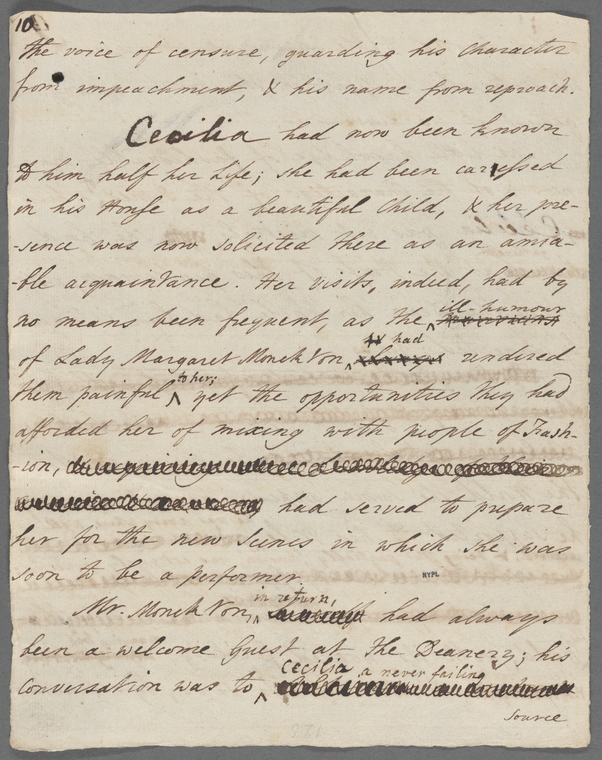 10
the voice of censure, guarding his character
from impeachment, & his name from reproach.
Cecilia had now been known
to him half her Life; she had been caressed
in his House as a beautiful Child, & her pre-
-sence was now solicited there as an amia-
-ble acquaintance. Her visits, indeed, had by
no means been frequent, as the ^ ill-humour
of Lady Margaret Monckton ^ had rendered
them painful ^ to her; yet the opportunities they had
afforded her of mixing with people of Fash-
-ion, had served to prepare
her for the new Scenes in which she was
soon to be a performer.
NYPL
Mr. Monckton, ^ in return, had always
been a welcome Guest at the Deanery; his
conversation was to ^ Cecilia a never failing
source